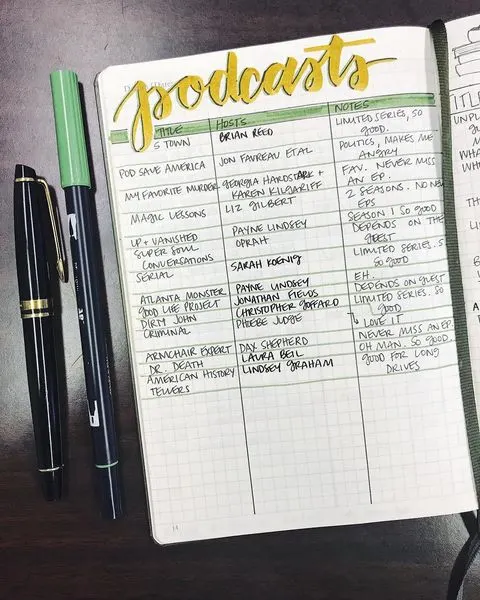 podcasts
TITLE HOSTS NOTES
S TOWN BRIAN REED LIMITED SERIES, SO GOOD.
POD SAVE AMERICA JON FAVREAU ET AL POLITICS, MAKES ME ANGRY
MY FAVORITE MURDER GEORGIA HARDSTARK + KAREN KILGARIFF FAV. NEVER MISS AN EP.
MAGIC LESSONS LIZ GILBERT 2 SEASONS. NO NEW EPS
UP + VANISHED PAYNE LINDSEY SEASON 1 SO GOOD
SUPER SOUL CONVERSATIONS OPRAH DEPENDS ON THE GUEST
SERIAL SARAH KOENIG LIMITED SERIES. SO GOOD
ATLANTA MONSTER PAYNE LINDSEY EH.
GOOD LIFE PROJECT JONATHAN FIELDS DEPENDS ON GUEST
DIRTY JOHN CHRISTOPHER GOFFARD LIMITED SERIES. SO GOOD
CRIMINAL PHOEBE JUDGE LOVE IT
ARMCHAIR EXPERT DAX SHEPHERD NEVER MISS AN EP.
DR. DEATH LAURA BEIL OH MAN. SO GOOD.
AMERICAN HISTORY TELLERS LINDSEY GRAHAM GOOD FOR LONG DRIVES